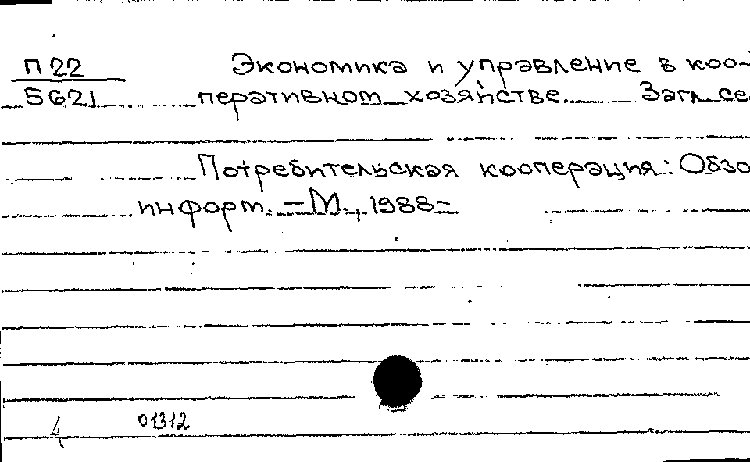 П22 Экономика и управление в коо-
5621 перативном хозяйстве. Загл. се
Потребительская кооперация: Обзо
информ. – М., 1988–
4 01312